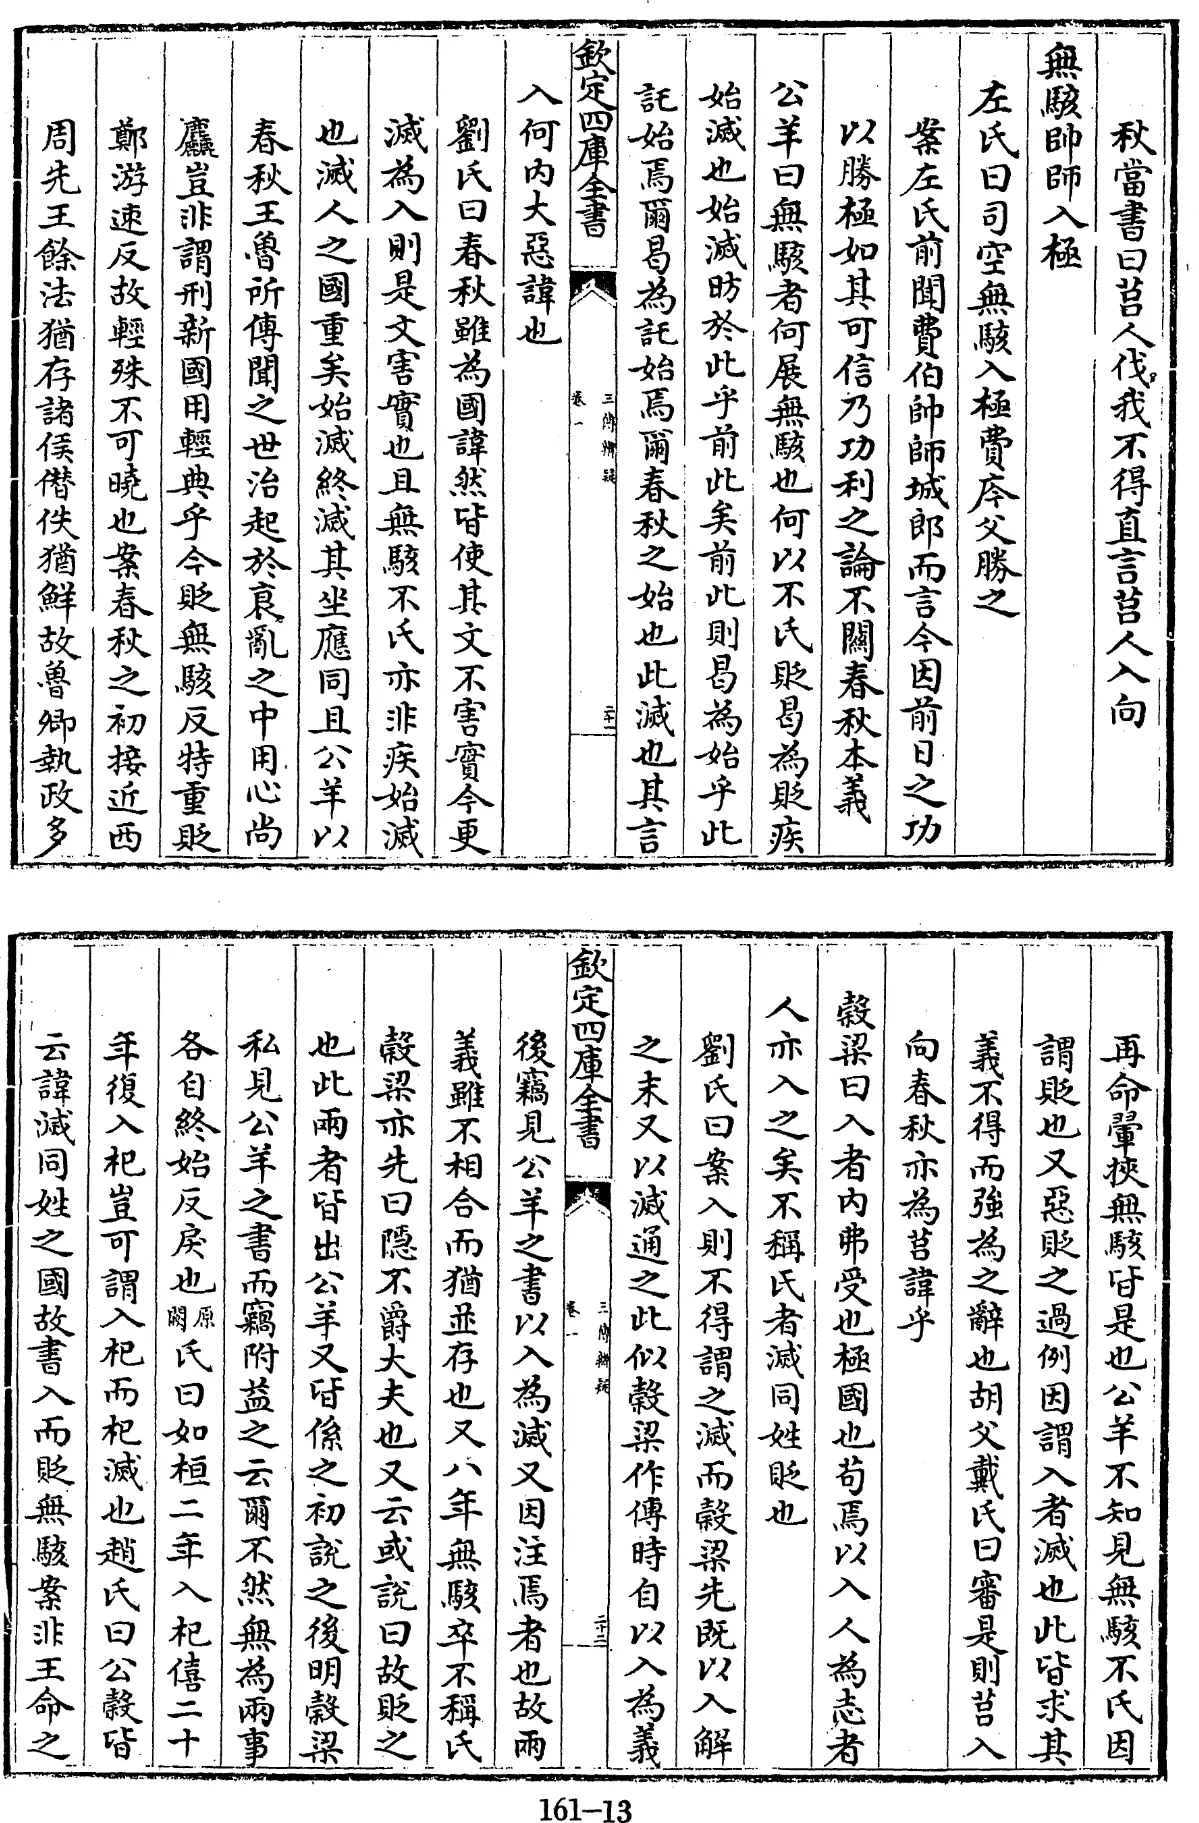 秋當書曰莒人伐我不得直言莒人入向
無駭帥師入極
左氏曰司空無駭入極費庈父勝之
案左氏前聞費伯帥師城郎而言今因前日之功
以勝極如其可信乃功利之論不關春秋本義
公羊曰無駭者何展無駭也何以不氏貶曷為貶疾
始滅也始滅昉於此乎前此矣前此則曷為始乎此
託始焉爾曷為託始焉爾春秋之始也此滅也其言
欽定四庫全書
三傳辨疑
卷一
二十一
入何內大惡諱也
劉氏曰春秋雖為國諱然皆使其文不害實今更
滅為入則是文害實也且無駭不氏亦非疾始滅
也滅人之國重矣始滅終滅其坐應同且公羊以
春秋王魯所傳聞之世治起於衰亂之中用心尚
麤豈非謂刑新國用輕典乎今貶無駭反特重貶
鄭游速反故輕殊不可曉也案春秋之初接近西
周先王餘法猶存諸侯僭佚猶鮮故魯卿執政多
再命翬挾無駭皆是也公羊不知見無駭不氏因
謂貶也又惡貶之過例因謂入者滅也此皆求其
義不得而強為之辭也胡父戴氏曰審是則莒入
向春秋亦為莒諱乎
穀梁曰入者內弗受也極國也苟焉以入人為志者
人亦入之矣不稱氏者滅同姓貶也
劉氏曰案入則不得謂之滅而穀梁先既以入解
之末又以滅通之此似穀梁作傳時自以入為義
欽定四庫全書
三傳辨疑
卷一
二十二
後竊見公羊之書以入為滅又因注焉者也故兩
義雖不相合而猶並存也又八年無駭卒不稱氏
穀梁亦先曰隱不爵大夫也又云或說曰故貶之
也此兩者皆出公羊又皆係之初說之後明穀梁
私見公羊之書而竊附益之云爾不然無為兩事
各自終始反戾也原闕氏曰如桓二年入杞僖二十
年復入杞豈可謂入杞而杞滅也趙氏曰公穀皆
云諱滅同姓之國故書入而貶無駭案非王命之
161-13